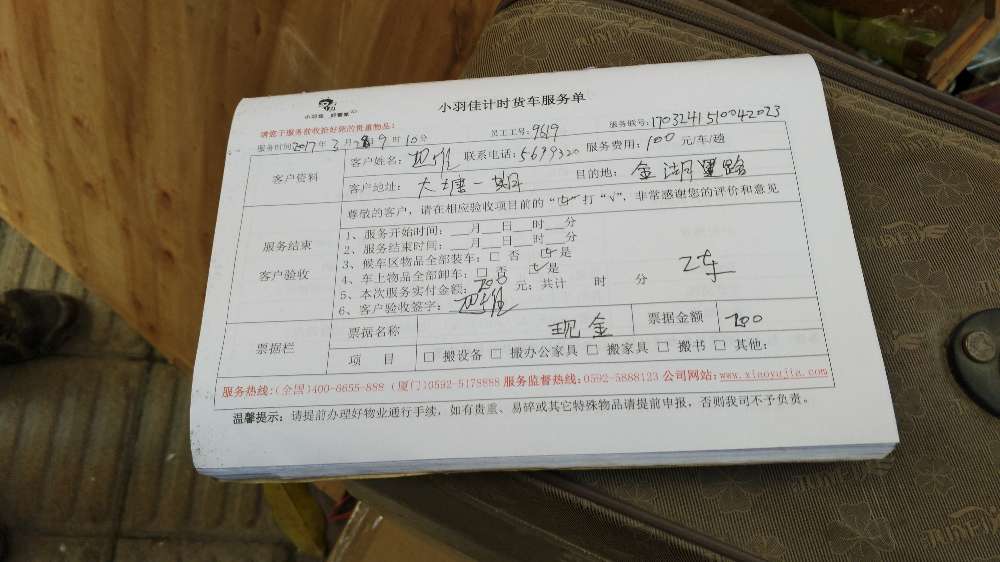 小羽佳 好管家
小羽佳计时货车服务单
请您于服务前收拾好您的贵重物品!
服务时间2017年3月28日9时10分 员工工号:9619 服务账号:1703241510042023
客户资料
客户姓名: 联系电话:5699320 服务费用:100元/车/趟
客户地址:大塘一期 目的地:金湖里路
服务结束
客户验收
尊敬的客户,请在相应验收项目前的“□”打“√”,非常感谢您的评价和意见
1、服务开始时间:___月___日___时___分
2、服务结束时间:___月___日___时___分
3、候车区物品全部装车:□ 否 ☑是
4、车上物品全部卸车:□ 否 ☑是
5、本次服务实付金额:200元;共计 时 分 2车
6、客户验收签字:
票据栏
票据名称 现金 票据金额 200
项 目 □ 搬设备 □ 搬办公家具 □ 搬家具 □ 搬书 □ 其他:
服务热线:(全国)400-6655-888 (厦门)0592-5178888 服务监督热线:0592-5888123 公司网站:www.xiaoyujia.com
温馨提示:请提前办理好物业通行手续,如有贵重、易碎或其它特殊物品请提前申报,否则我司不予负责。